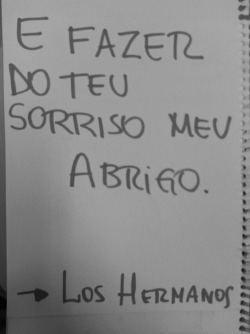 E FAZER
DO TEU
SORRISO MEU
ABRIGO.
→ LOS HERMANOS